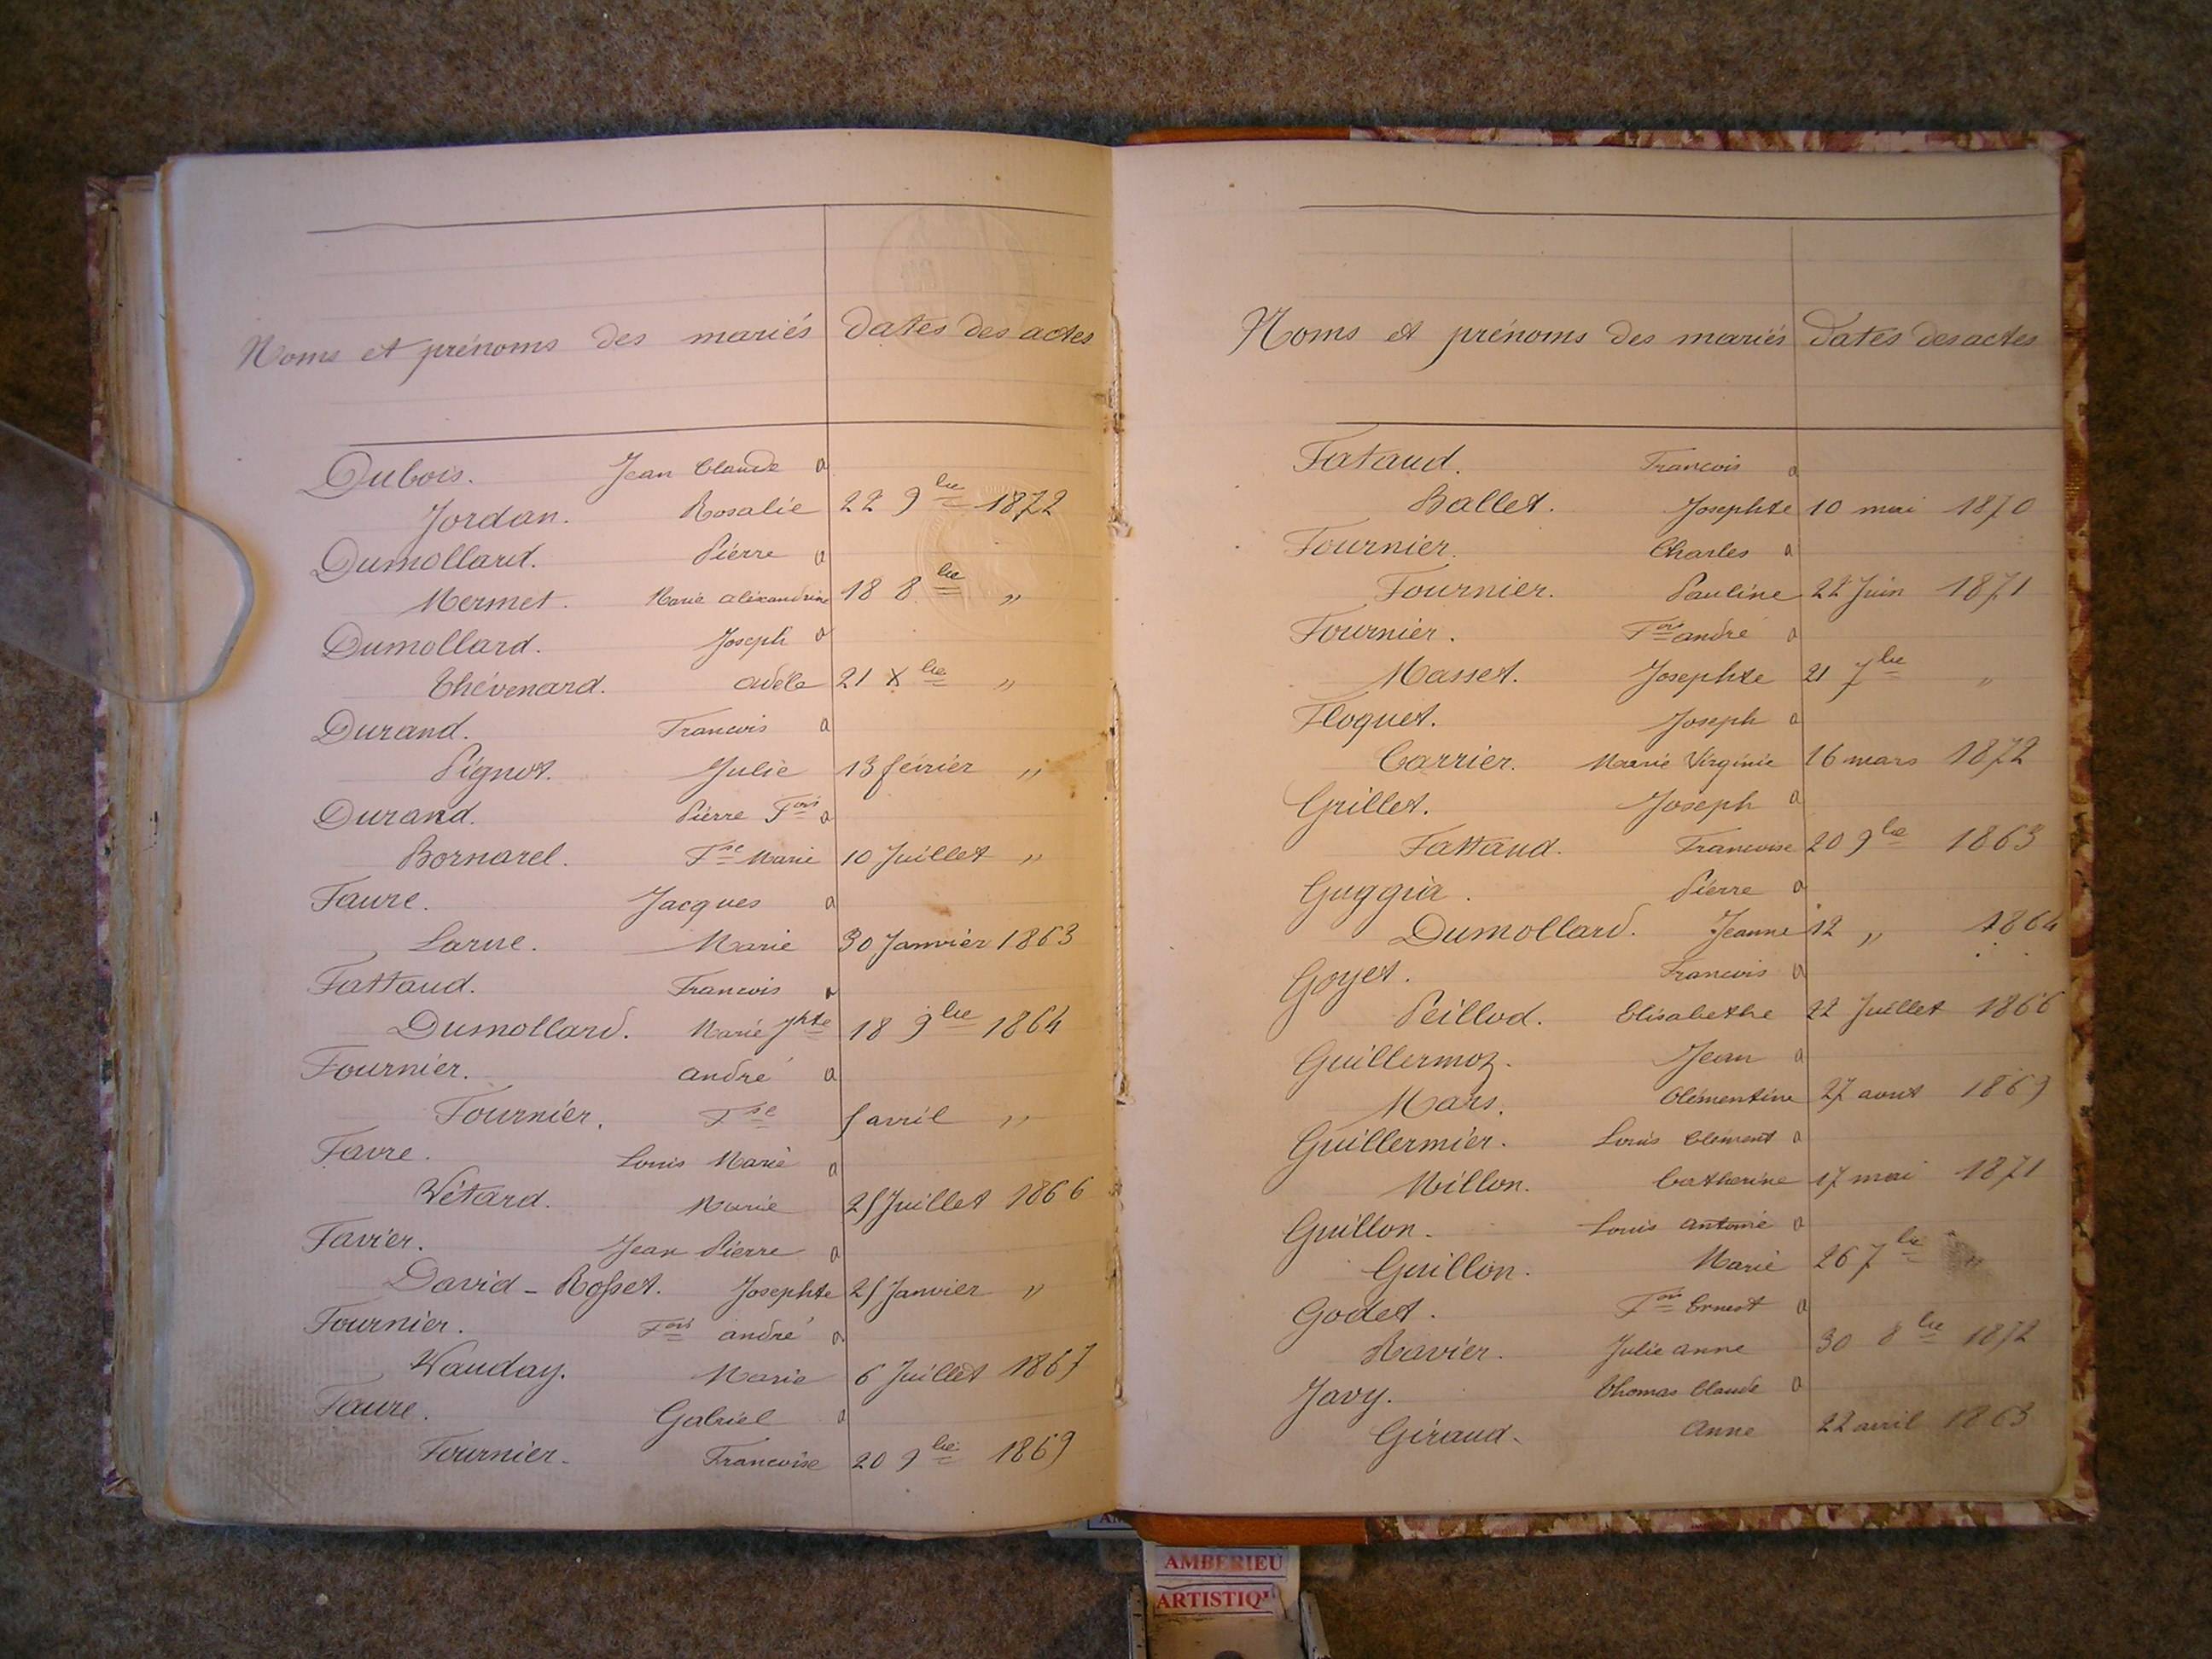 Noms et prénoms des mariés dates des actes
Dubois. Jean Claude a
Jordan. Rosalie 22 9bre 1872
Dumollard. Pierre a
Mermet. Marie alexandrine 18 8bre "
Dumollard. Joseph a
Thévenard. adèle 21 Xbre "
Durand. Francois a
Pignot. Julie 13 février "
Durand. Pierre Fois a
Bornarel. Fse Marie 10 Juillet "
Faure. Jacques a
Larue. Marie 30 Janvier 1863
Fattaud. Francois a
Dumollard. Marie Jhte 18 9bre 1864
Fournier. andré a
Fournier. Fse 5 avril "
Favre. Louis Marie a
Vétard. Marie 25 Juillet 1866
Favier. Jean Pierre a
David - Rosset. Josephte 25 Janvier "
Fournier. Fois andré a
Vauday. Marie 6 Juillet 1867
Faure. Gabriel a
Fournier. Francoise 20 9bre 1869
Noms et prénoms des mariés dates des actes
Fataud. Francois a
Ballet. Josephte 10 mai 1870
Fournier. Charles a
Fournier. Pauline 22 Juin 1871
Fournier. Fois andré a
Masset. Josephte 21 7bre "
Floquet. Joseph a
Carrier. Marie Virginie 16 mars 1872
Grillet. Joseph a
Fattaud. Francoise 20 9bre 1863
Guggia. Pierre a
Dumollard. Jeanne 12 " 1864
Goyet. Francois a
Peillod. Elisabethe 22 Juillet 1866
Guillermoz. Jean a
Mars. Clémentine 27 aout 1869
Guillermier. Louis Clément a
Millon. Catherine 17 mai 1871
Guillon. Louis antoine a
Guillon. Marie 26 7bre "
Godet. Fois Ernest a
Ravier. Julie anne 30 8bre 1872
Javy. Thomas Claude a
Giraud. anne 22 avril 1863
AMBERIEU
ARTISTIQU